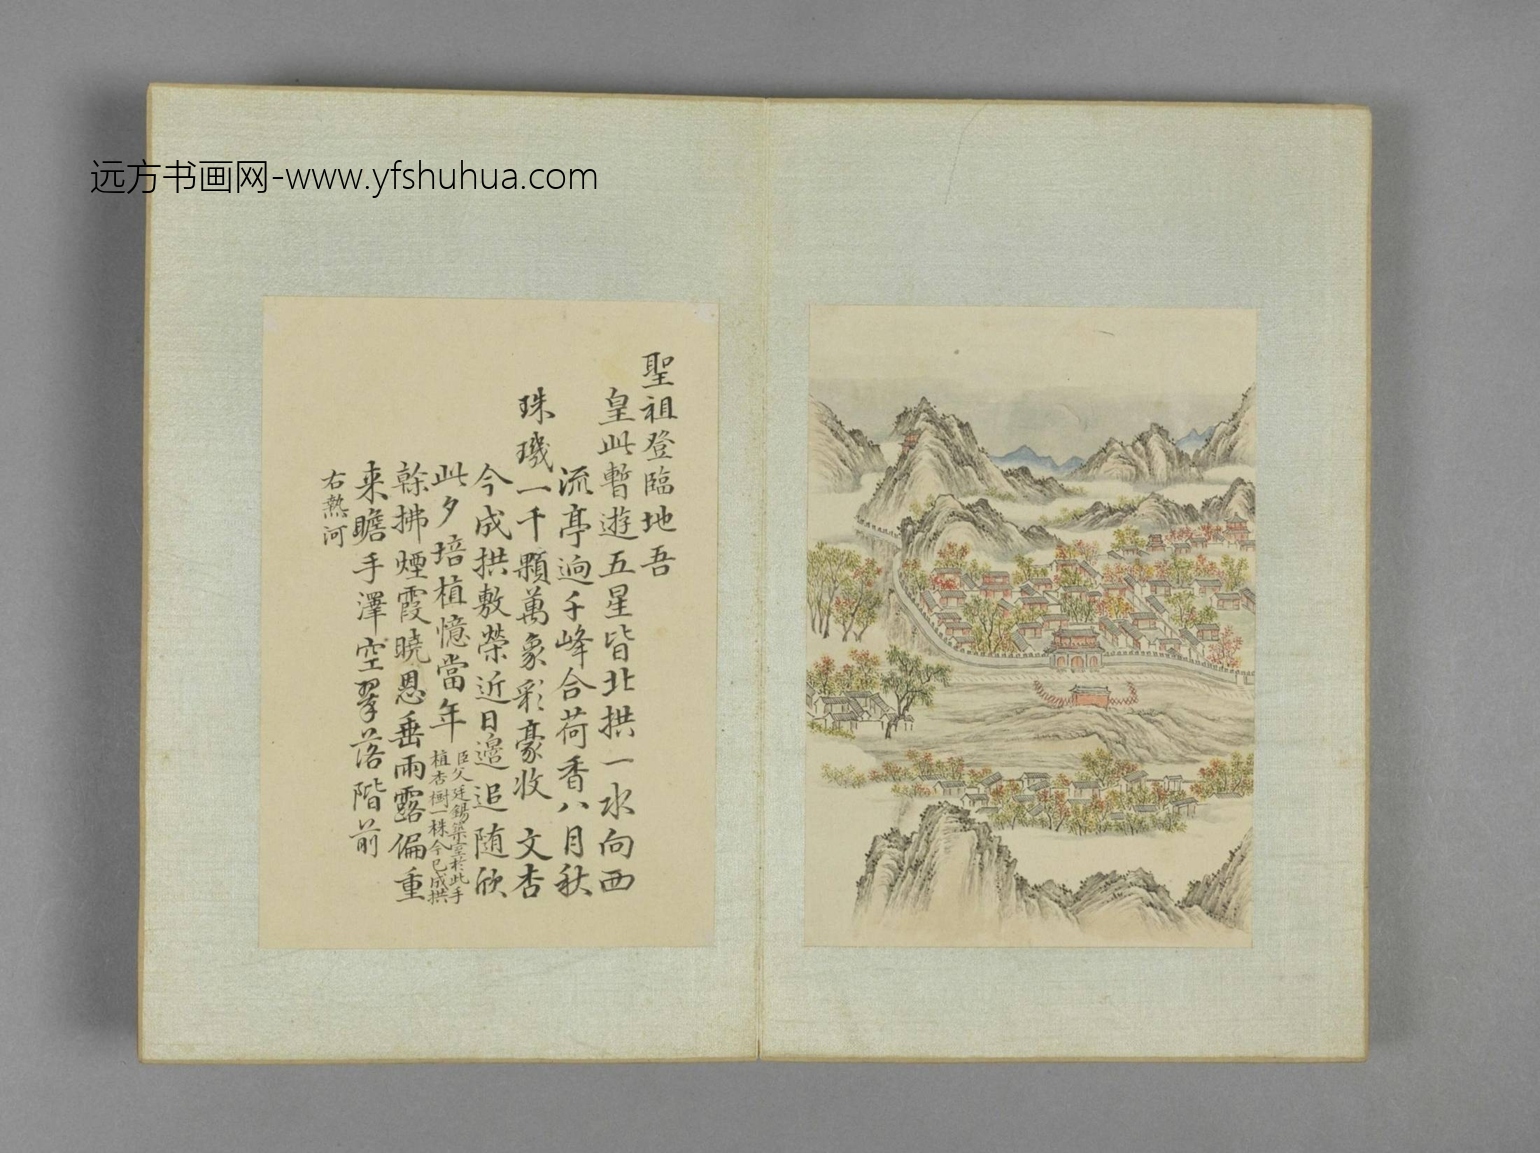 远方书画网-www.yfshuhua.com
聖祖登臨地吾
皇此暫遊五星皆北拱一水向西
流亭逈千峰合荷香八月秋
珠璣一千顆萬象彩豪收 文杏
今成拱敷榮近日邉追随欣
此夕培植憶當年臣父廷錫築堂於此手植杏樹一株今已成拱
榦拂煙霞曉恩垂雨露偏重
来瞻手澤空翠落階前
右熱河